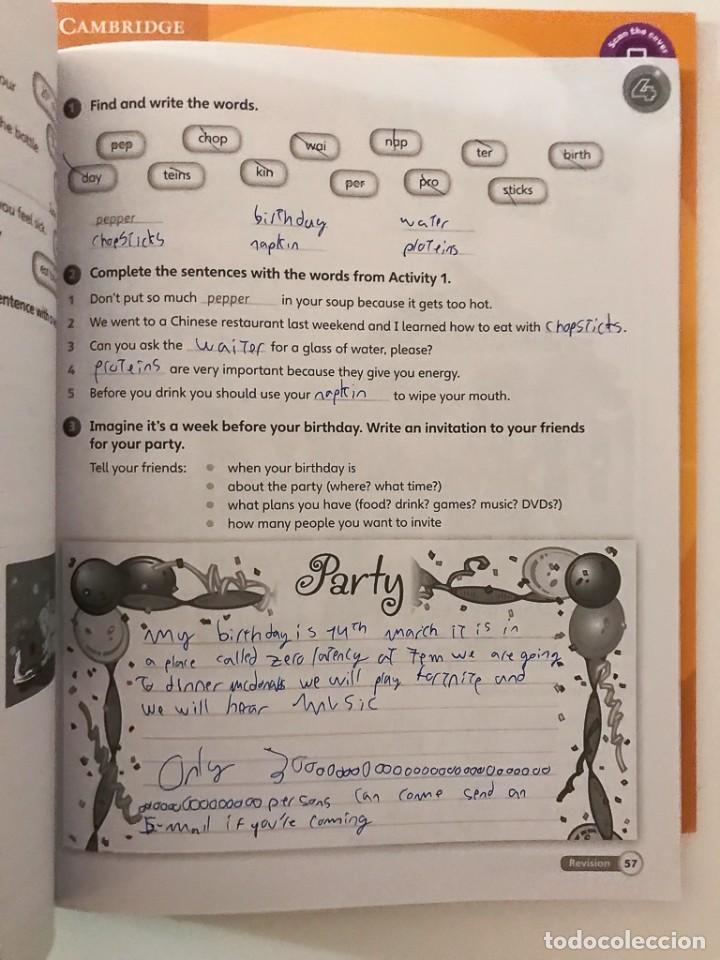 CAMBRIDGE
Scan the cover
4
our
he bottle
you feel sick.
entence with
1 Find and write the words.
pep chop wai nap ter birth
day teins kin per pro sticks
pepper birthday water
chopsticks napkin proteins
2 Complete the sentences with the words from Activity 1.
1 Don't put so much pepper in your soup because it gets too hot.
2 We went to a Chinese restaurant last weekend and I learned how to eat with chopsticks.
3 Can you ask the waiter for a glass of water, please?
4 proteins are very important because they give you energy.
5 Before you drink you should use your napkin to wipe your mouth.
3 Imagine it's a week before your birthday. Write an invitation to your friends
for your party.
Tell your friends: • when your birthday is
• about the party (where? what time?)
• what plans you have (food? drink? games? music? DVDs?)
• how many people you want to invite
Party
My birthday is 14th march it is in
a place called zero latency at 7pm we are going
to dinner mcdonals we will play fortnite and
we will hear music
Only
persons can come send an
E-mail if you're coming
Revision 57
todocoleccion.net